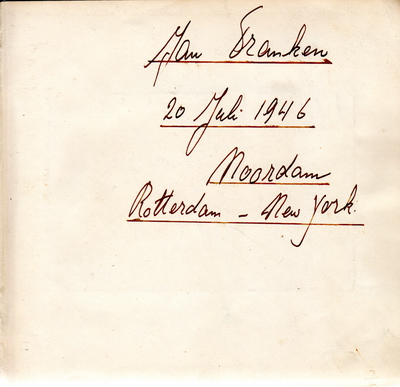 Jan Franken
20 Juli 1946
Noordam
Rotterdam - New York.